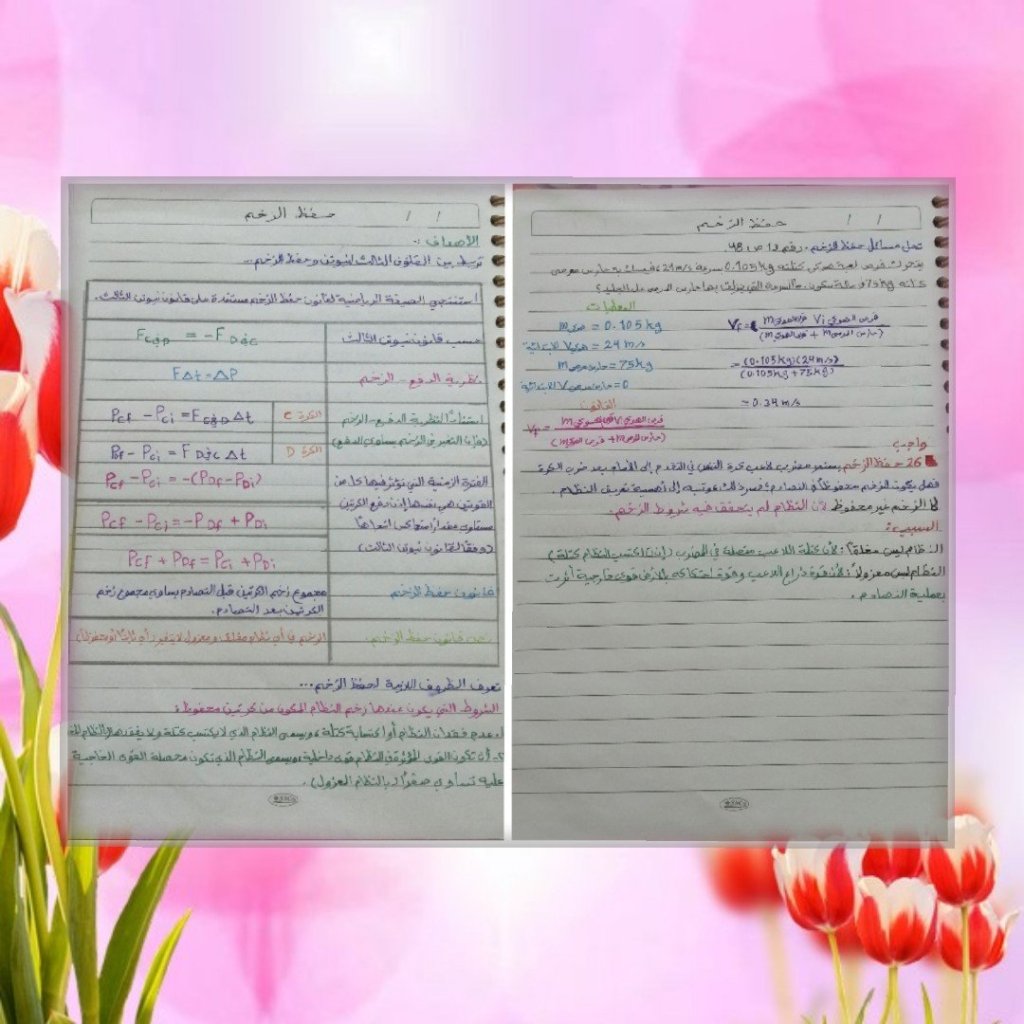 حفظ الزخم
/ /
الأهداف :-
تربط بين القانون الثالث لنيوتن وحفظ الزخم...
استنتجي الصيغة الرياضية لقانون حفظ الزخم مستمدة على قانون نيوتن الثالث.
حسب قانون نيوتن الثالث
نظرية الدفع - الزخم
FΔt = ΔP
استناداً لنظرية الدفع - الزخم
الكرة C
الكرة D
(الفترة الزمنية التي تؤثر فيها كلا من
القوتين هي نفسها إذن دفع الكرتين
متساوي مقداراً متعاكس اتجاهاً
(وفقاً لقانون نيوتن الثالث)
P_Cf - P_Ci = -(P_Df - P_Di)
P_Cf - P_Ci = -P_Df + P_Di
P_Cf + P_Df = P_Ci + P_Di
قانون حفظ الزخم
مجموع زخم الكرتين قبل التصادم يساوي مجموع زخم
الكرتين بعد التصادم.
نص قانون حفظ الزخم
الزخم في أي نظام مغلق ومعزول لا يتغير
تعرف الظروف اللازمة لحفظ الزخم...
الشروط التي يكون عندها زخم النظام المكون من كرتين محفوظ:
عدم فقدان النظام أو اكتسابه كتلة ويسمى النظام الذي لا يكتسب كتلة ولا يفقدها
2- أن تكون القوى المؤثرة في النظام قوى داخلية ويسمى النظام الذي تكون محصلة القوى الخارجية
عليه تساوي صفراً بالنظام المعزول).
حفظ الزخم
/ /
تحل مسائل حفظ الزخم. رقم 12 ص 48.
يتحرك قرص لعبة هوكي كتلته 0.105kg بسرعة 24m/s فيمسك به حارس مرمى
كتلته 75kg في حالة سكون، ما السرعة التي ينزلق بها حارس المرمى على الجليد؟
المعطيات
= 0.105 kg
= 24 m/s
= 75kg
= 0
= (0.105kg)(24m/s) / (0.105kg + 75kg)
= 0.34 m/s
القانون
واجب
26 حفظ الزخم يستمر مضرب لاعب كرة التنس في التقدم إلى الأمام بعد ضرب الكرة
فهل يكون الزخم محفوظاً في التصادم؟ فسر ذلك، وتنبه إلى أهمية تعريف النظام.
لا الزخم غير محفوظ لأن النظام لم يتحقق فيه شروط الزخم.
السبب:
النظام ليس مغلقاً: لأن كتلة اللاعب متصلة في المضرب (إذن اكتسب النظام كتلة)
النظام ليس معزولاً: لأن قوة ذراع اللاعب وقوة احتكاكه بالأرض قوى خارجية أثرت
بعملية التصادم.